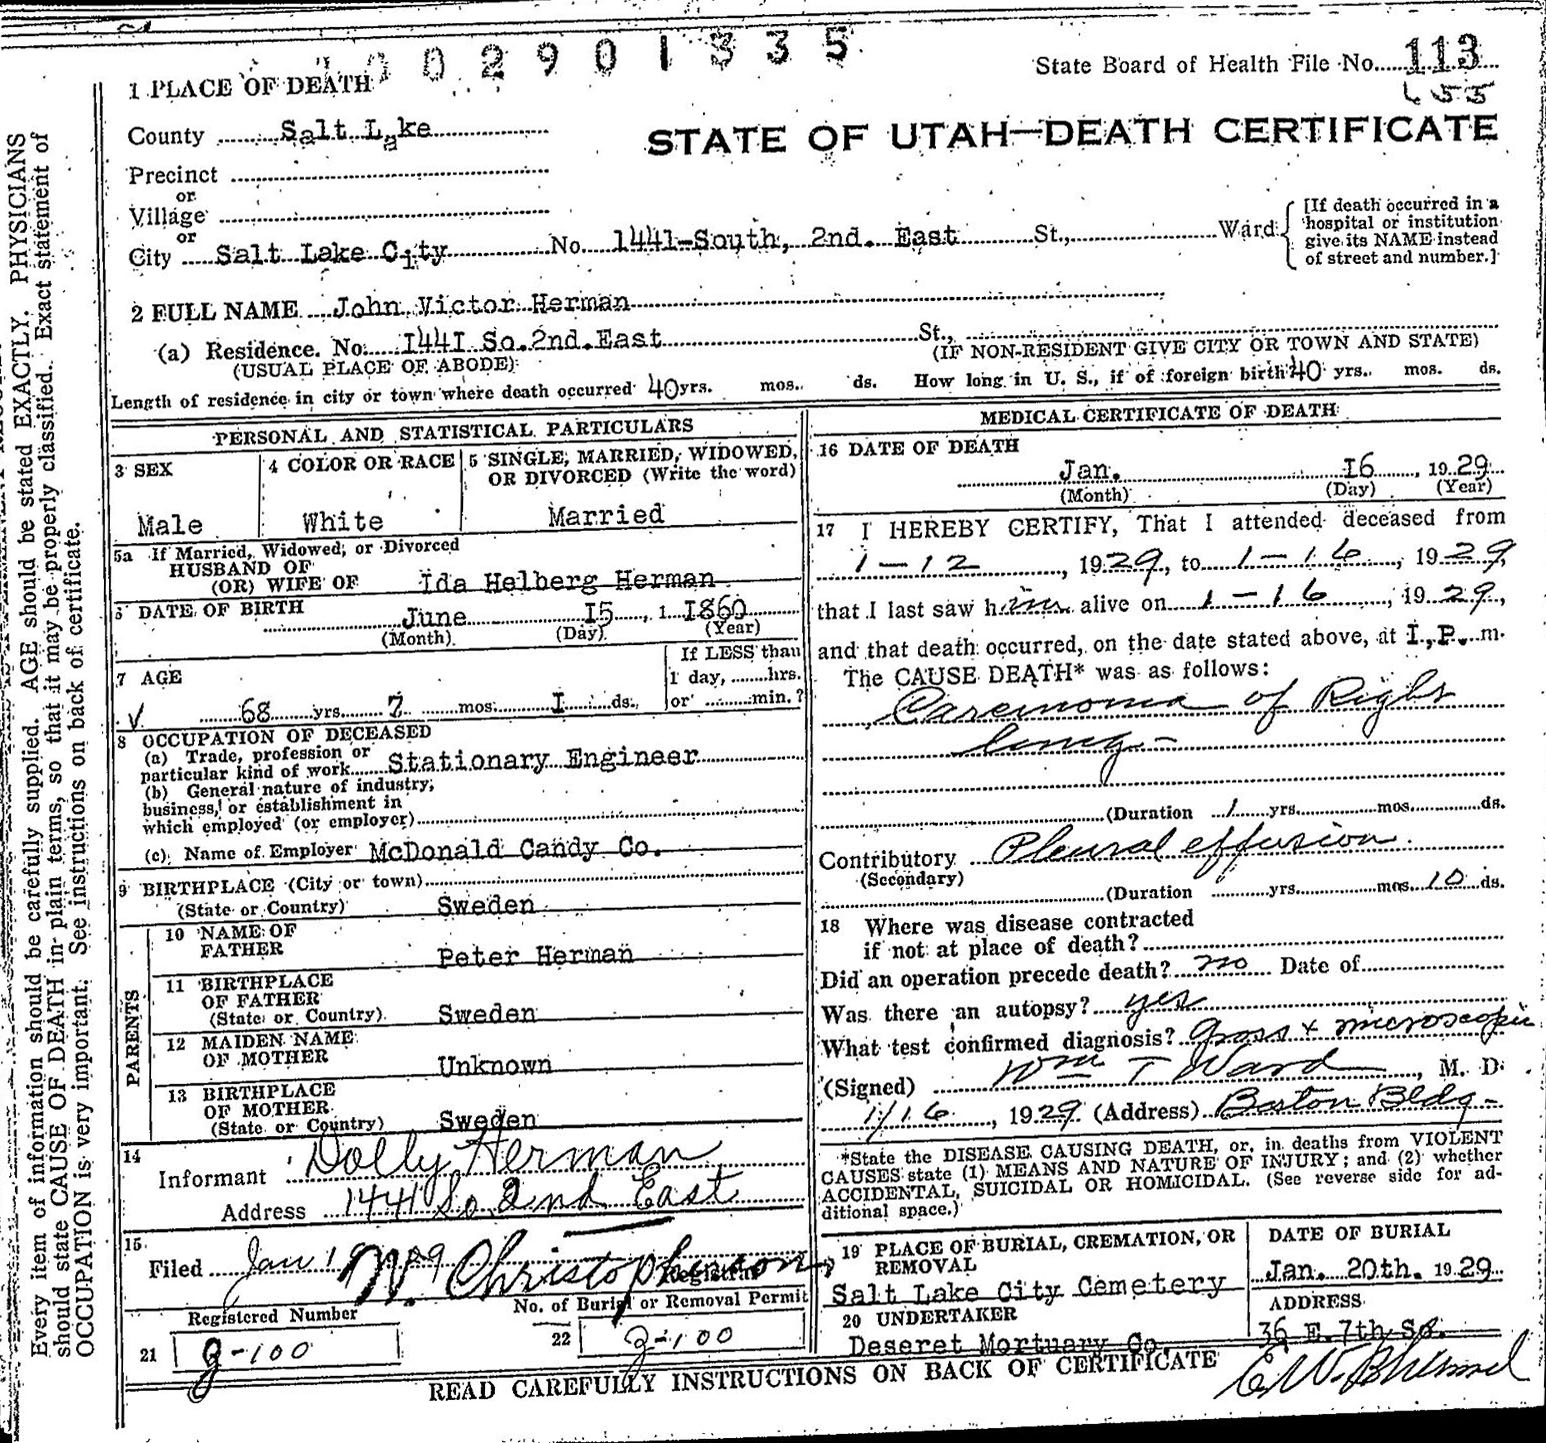 0 0 2 9 0 1 3 3 5
State Board of Health File No. 113
655
1 PLACE OF DEATH
County Salt Lake
STATE OF UTAH—DEATH CERTIFICATE
Precinct
or
Village
or
City Salt Lake City No. 1441-South, 2nd. East St., Ward
[If death occurred in a
hospital or institution
give its NAME instead
of street and number.]
2 FULL NAME John Victor Herman
(a) Residence. No. I44I So.2nd.East St.,
(USUAL PLACE OF ABODE)
(IF NON-RESIDENT GIVE CITY OR TOWN AND STATE)
Length of residence in city or town where death occurred 40 yrs. mos. ds. How long in U. S., if of foreign birth 40 yrs. mos. ds.
PERSONAL AND STATISTICAL PARTICULARS
3 SEX
Male
4 COLOR OR RACE
White
5 SINGLE, MARRIED, WIDOWED,
OR DIVORCED (Write the word)
Married
5a If Married, Widowed, or Divorced
HUSBAND OF
(OR) WIFE OF Ida Helberg Herman
6 DATE OF BIRTH June I5, 1 1860
(Month) (Day) (Year)
7 AGE
If LESS than
1 day, hrs.
or min.?
68 yrs. 7 mos. I ds.
8 OCCUPATION OF DECEASED
(a) Trade, profession or
particular kind of work Stationary Engineer
(b) General nature of industry,
business, or establishment in
which employed (or employer)
(c) Name of Employer McDonald Candy Co.
9 BIRTHPLACE (City or town)
(State or Country) Sweden
PARENTS
10 NAME OF
FATHER Peter Herman
11 BIRTHPLACE
OF FATHER
(State or Country) Sweden
12 MAIDEN NAME
OF MOTHER Unknown
13 BIRTHPLACE
OF MOTHER
(State or Country) Sweden
14
Informant Dolly Herman
Address 1441 So 2nd East
15
Filed Jan 1929 W. Christopherson
Registrar
Registered Number
21 g-100
No. of Burial or Removal Permit
22 g-100
MEDICAL CERTIFICATE OF DEATH
16 DATE OF DEATH
Jan. I6, 1929
(Month) (Day) (Year)
17 I HEREBY CERTIFY, That I attended deceased from
1-12, 1929, to 1-16, 1929,
that I last saw him alive on 1-16, 1929,
and that death occurred, on the date stated above, at I.,P. m.
The CAUSE DEATH* was as follows:
Carcinoma of Right
lung-
(Duration 1 yrs. mos. ds.
Contributory Pleural effusion.
(Secondary)
(Duration yrs. mos. 10 ds.
18 Where was disease contracted
if not at place of death?
Did an operation precede death? no Date of
Was there an autopsy? yes
What test confirmed diagnosis? Gross + microscopic
(Signed) Wm T Ward, M. D.
1/16, 1929 (Address) Boston Bldg-
*State the DISEASE CAUSING DEATH, or, in deaths from VIOLENT
CAUSES state (1) MEANS AND NATURE OF INJURY; and (2) whether
ACCIDENTAL, SUICIDAL OR HOMICIDAL. (See reverse side for ad-
ditional space.)
19 PLACE OF BURIAL, CREMATION, OR
REMOVAL
Salt Lake City Cemetery
DATE OF BURIAL
Jan. 20th. 1929
20 UNDERTAKER
Deseret Mortuary Co.
ADDRESS
36 E. 7th So.
READ CAREFULLY INSTRUCTIONS ON BACK OF CERTIFICATE
Every item of information should be carefully supplied. AGE should be stated EXACTLY. PHYSICIANS
should state CAUSE OF DEATH in plain terms, so that it may be properly classified. Exact statement of
OCCUPATION is very important. See instructions on back of certificate.